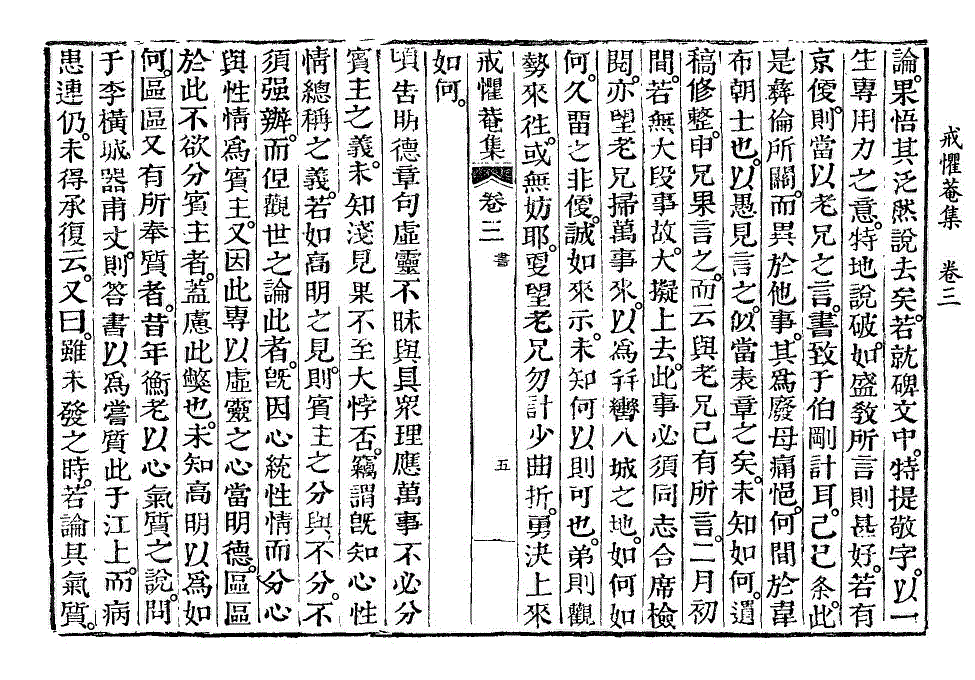 戒懼菴集　卷三
論。果悟其泛然說去矣。若就碑文中。特提敬字。以一
生專用力之意。特地說破。如盛敎所言則甚好。若有
京便。則當以老兄之言。書致于伯剛計耳。己巳条。此
是彝倫所關。而異於他事。其爲廢母痛悒。何間於韋
布朝士也。以愚見言之。似當表章之矣。未知如何。遺
稿修整。申兄果言之。而云與老兄已有所言。二月初
間。若無大段事故。大擬上去。此事必須同志合席檢
閱。亦望老兄掃萬事來。以爲幷轡入城之地。如何如
何。久留之非便。誠如來示。未知何以則可也。弟則觀
勢來往。或無妨耶。更望老兄勿計少曲折。勇決上來
戒懼菴集　卷三　書　五
如何。
頃告明德章句虛靈不昧與具衆理應萬事不必分
賓主之義。未知淺見果不至大悖否。竊謂旣知心性
情總稱之義。若如高明之見。則賓主之分與不分。不
須强辦。而但觀世之論此者。旣因心統性情而分心
與性情爲賓主。又因此專以虛靈之心當明德。區區
於此不欲分賓主者。蓋慮此弊也。未知高明以爲如
何。區區又有所奉質者。昔年衡老以心氣質之說。問
于李橫城器甫丈。則答書以爲嘗質此于江上。而病
患連仍。未得承復云。又曰。雖未發之時。若論其氣質。